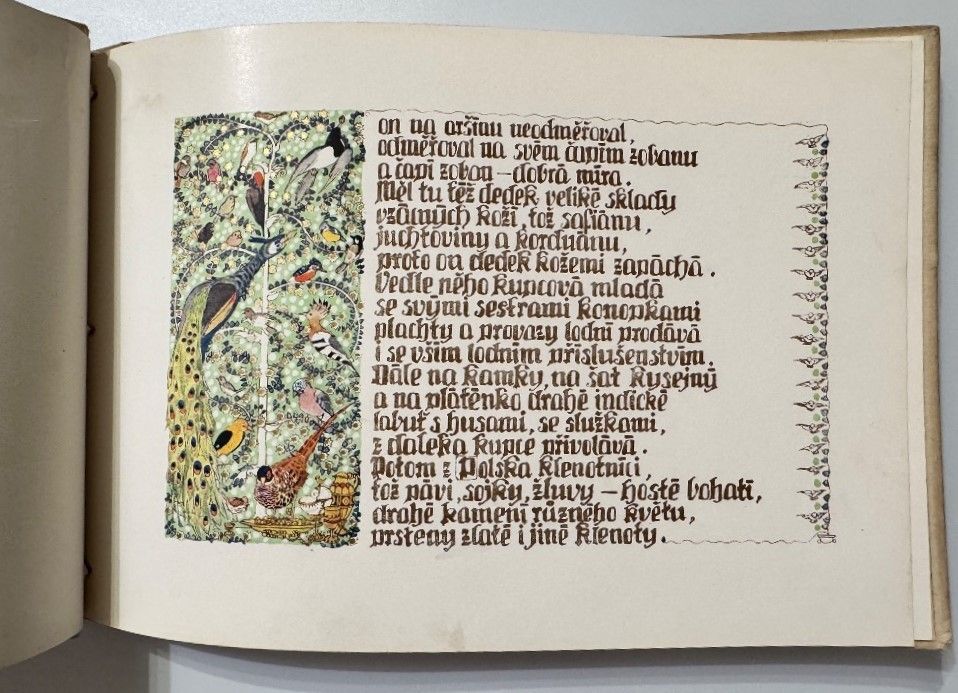 on na aršinu neodměřoval,
odměřoval na svém čapím zobanu
a čapí zoban – dobrá míra.
Měl tu též dedek veliké sklady
vzácných koží, tož safiánu,
juchtoviny a korduánu,
proto on dedek kožemi zapáchá.
Vedle něho kupcová mladá
se svými sestrami konopkami
plachty a provazy lodní prodává
i se vším lodním příslušenstvím.
Dále na kamky, na šat kysejný
a na pláténko drahé indické
labuť s husami, se služkami,
z daleka kupce přivolává.
Potom z Polska klenotníci,
tož pávi, sojky, žluvy – hosté bohatí,
drahé kamení různého květu,
prsteny zlaté i jiné klenoty.